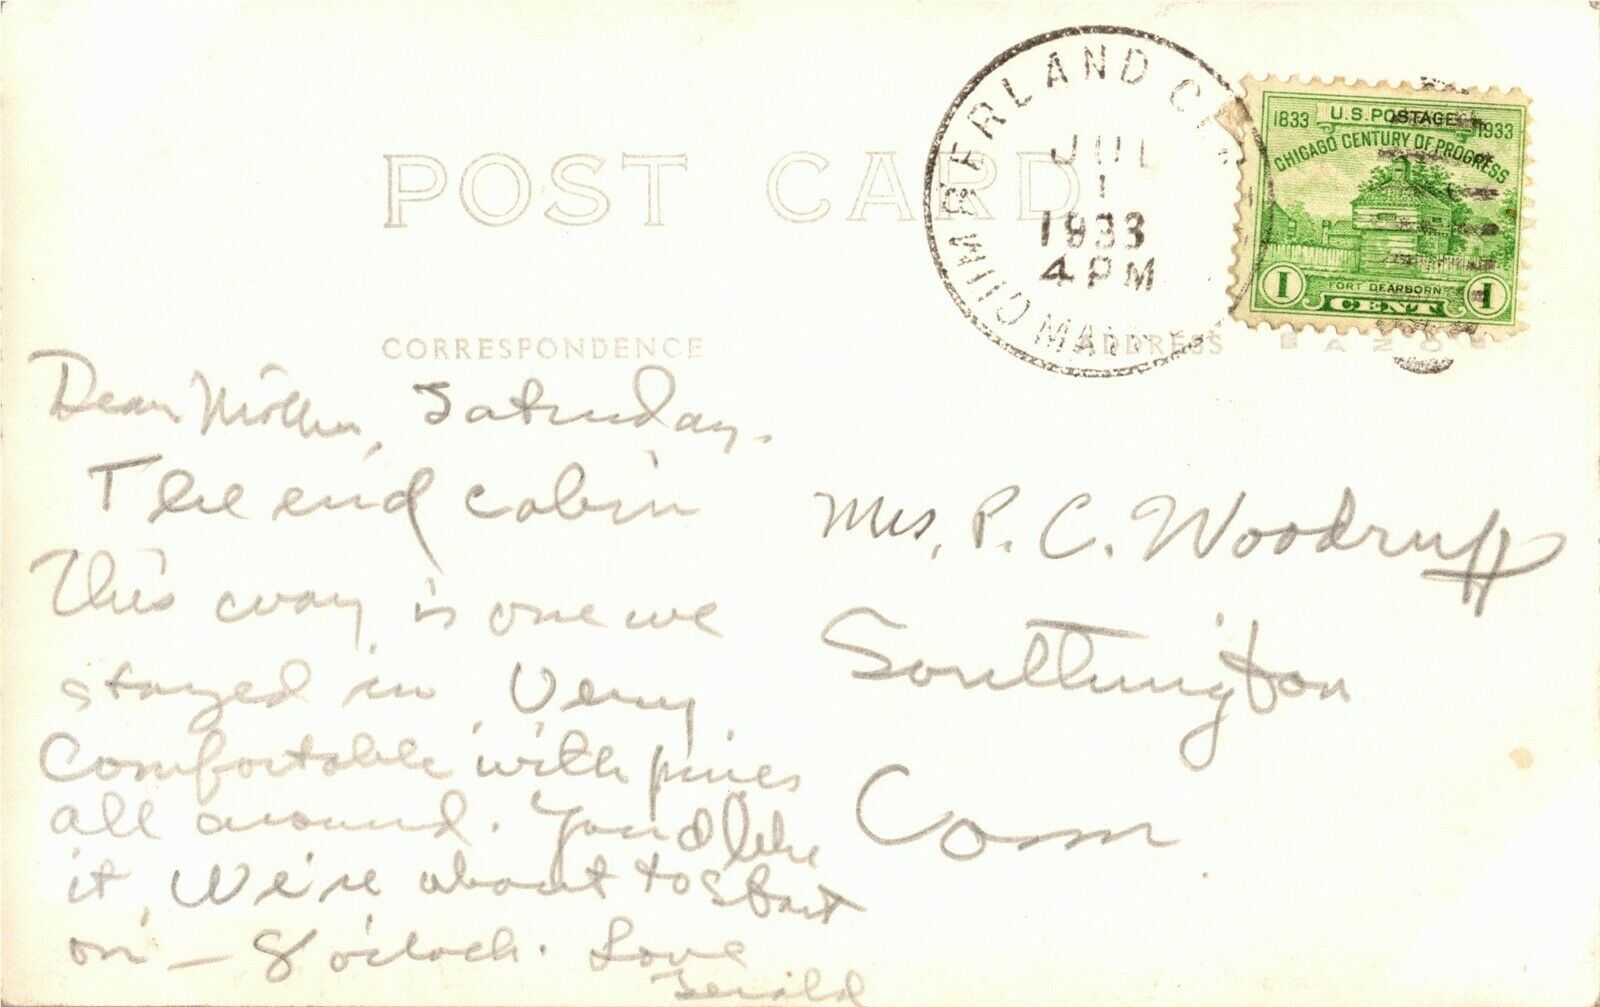 POST CARD
CUMBERLAND
JUL
1
1933
4 PM
1833 U.S. POSTAGE 1933
CHICAGO CENTURY OF PROGRESS
FORT DEARBORN
1 CENT 1
CORRESPONDENCE
ADDRESS
Dear Mother, Saturday.
The end cabin
this way is one we
stayed in Very
Comfortable with pines
all around. You'd like
it. We're about to start
on — 8 o'clock. Love
Gerald
Mrs. P. C. Woodruff
Southington
Conn